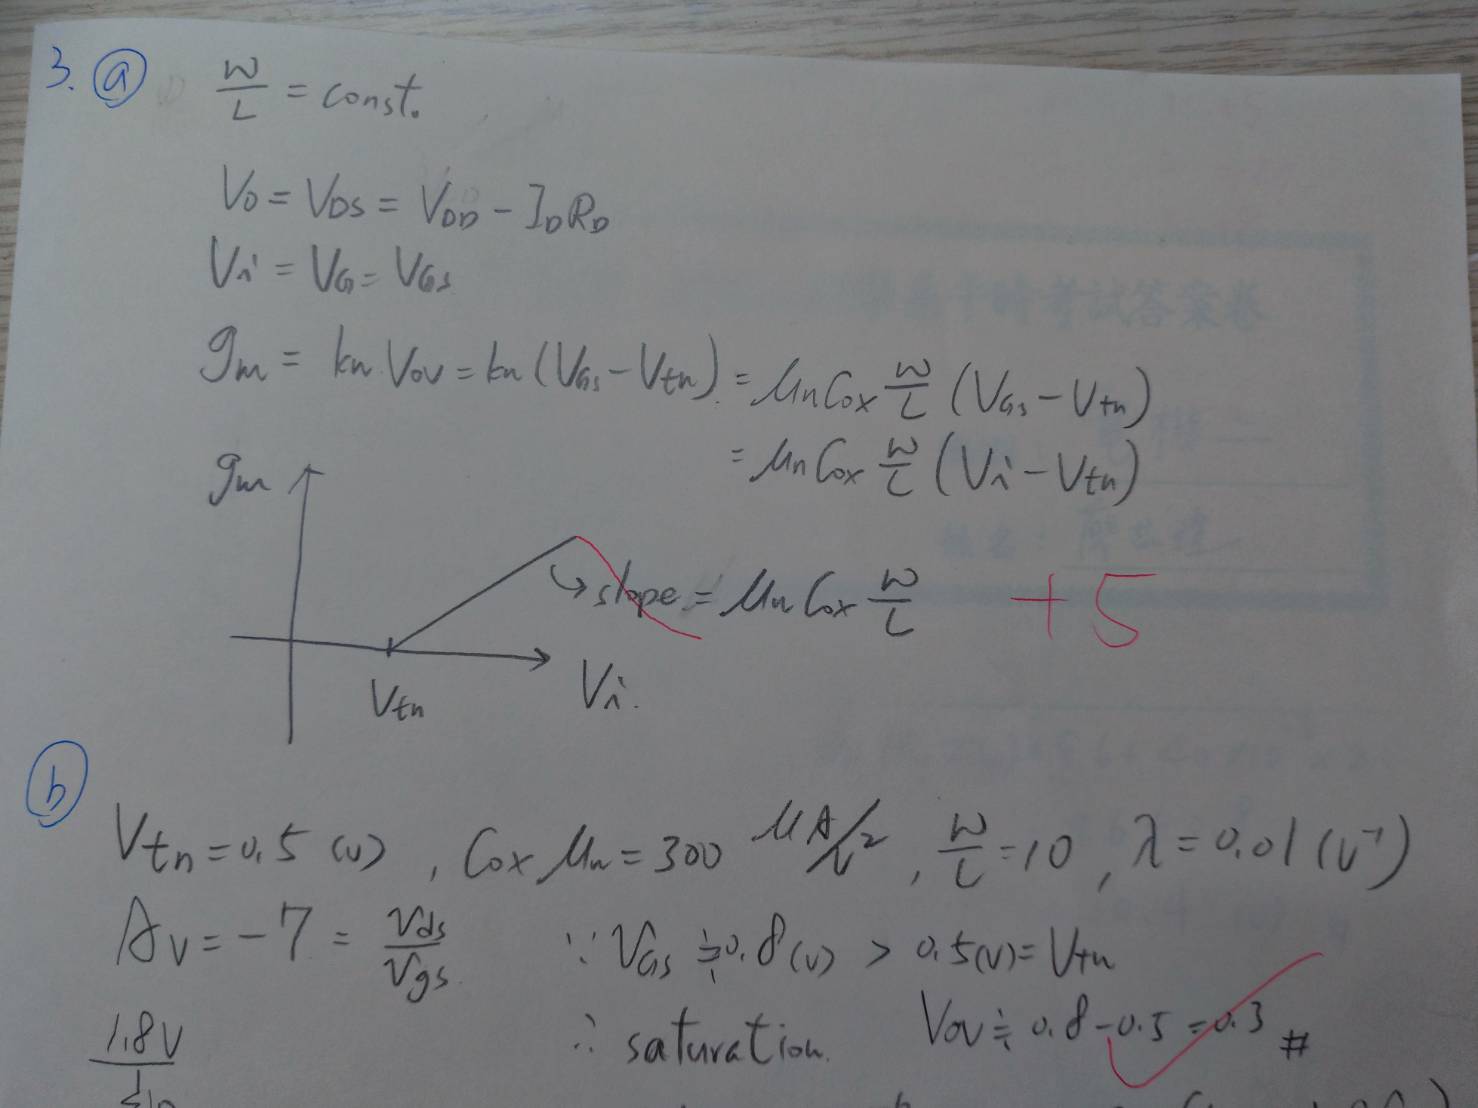 3. ⓐ W/L = const.
V0 = VDS = VDD - IDRD
Vi = VG = VGS
gm = kn VOV = kn (VGS - Vtn) = μnCox W/L (VGS - Vtn)
= μnCox W/L (Vi - Vtn)
gm
slope = μnCox W/L +5
Vtn Vi
ⓑ
Vtn = 0.5 (V), Cox μn = 300 μA/V², W/L = 10, λ = 0.01 (V⁻¹)
AV = -7 = vds/vgs ∵ VGS ≒ 0.8 (V) > 0.5 (V) = Vtn
1.8V ∴ saturation. VOV ≒ 0.8 - 0.5 = 0.3 #